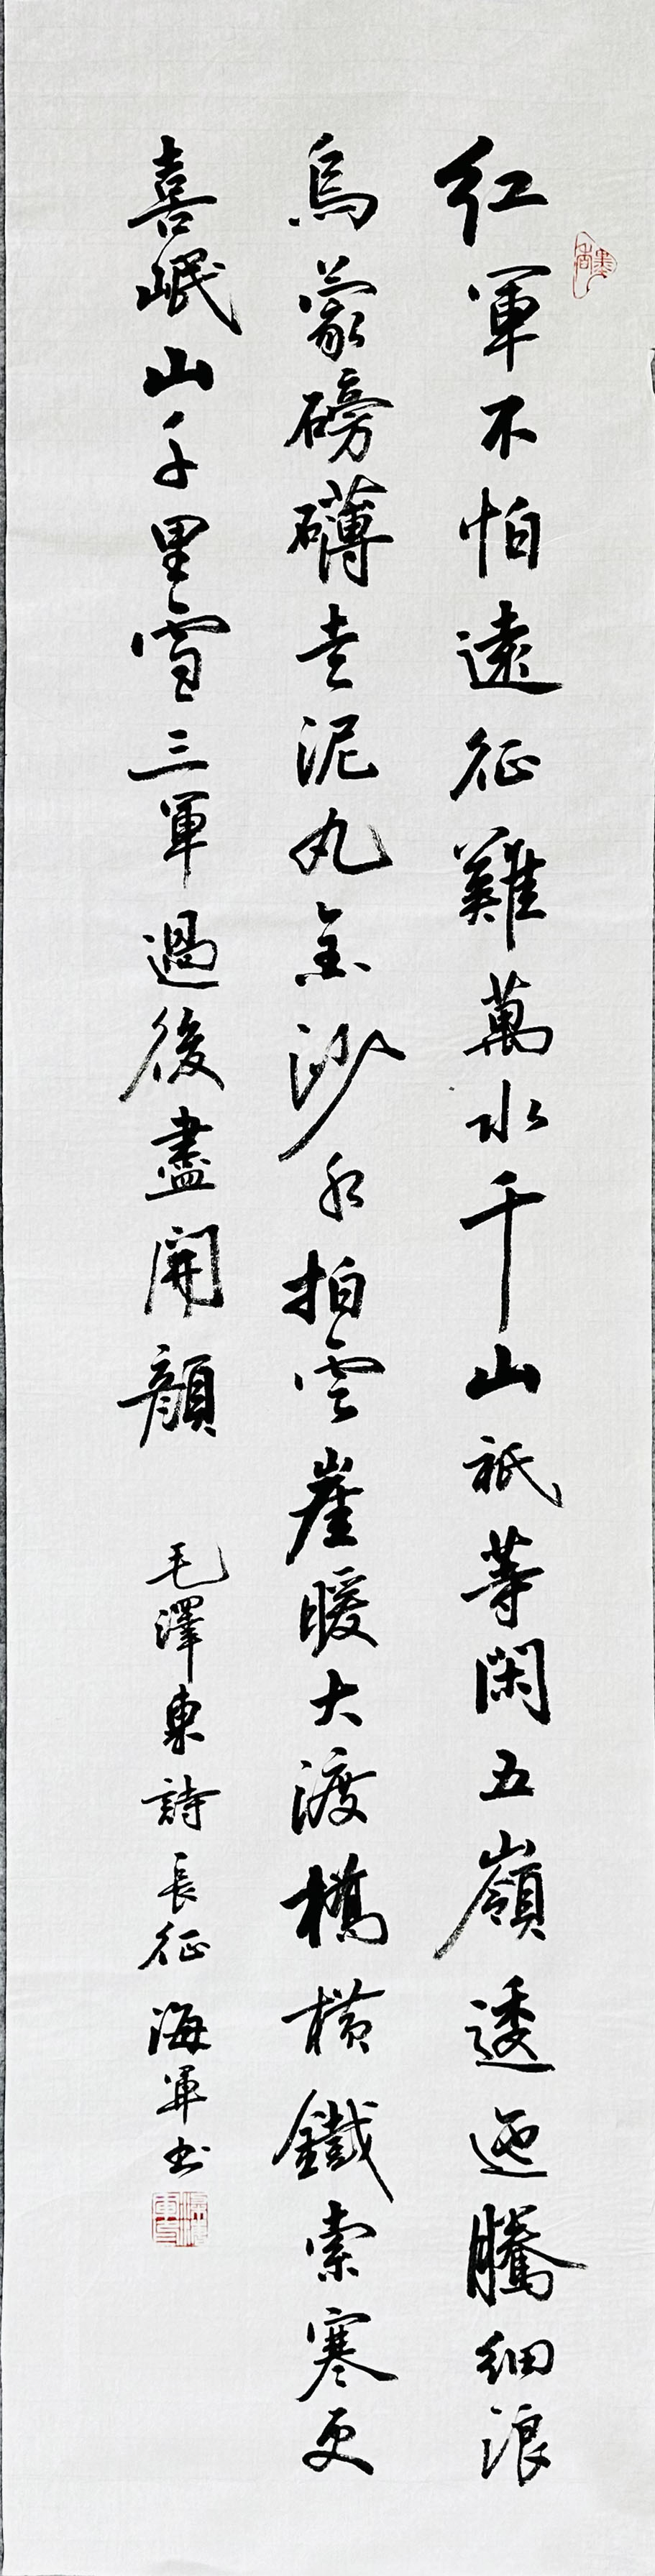 红軍不怕遠征難萬水千山祇等閑五嶺逶迤騰細浪
烏蒙磅礴走泥丸金沙水拍雲崖暖大渡橋橫鐵索寒更
喜岷山千里雪三軍過後盡開顏
毛澤東詩長征海軍书